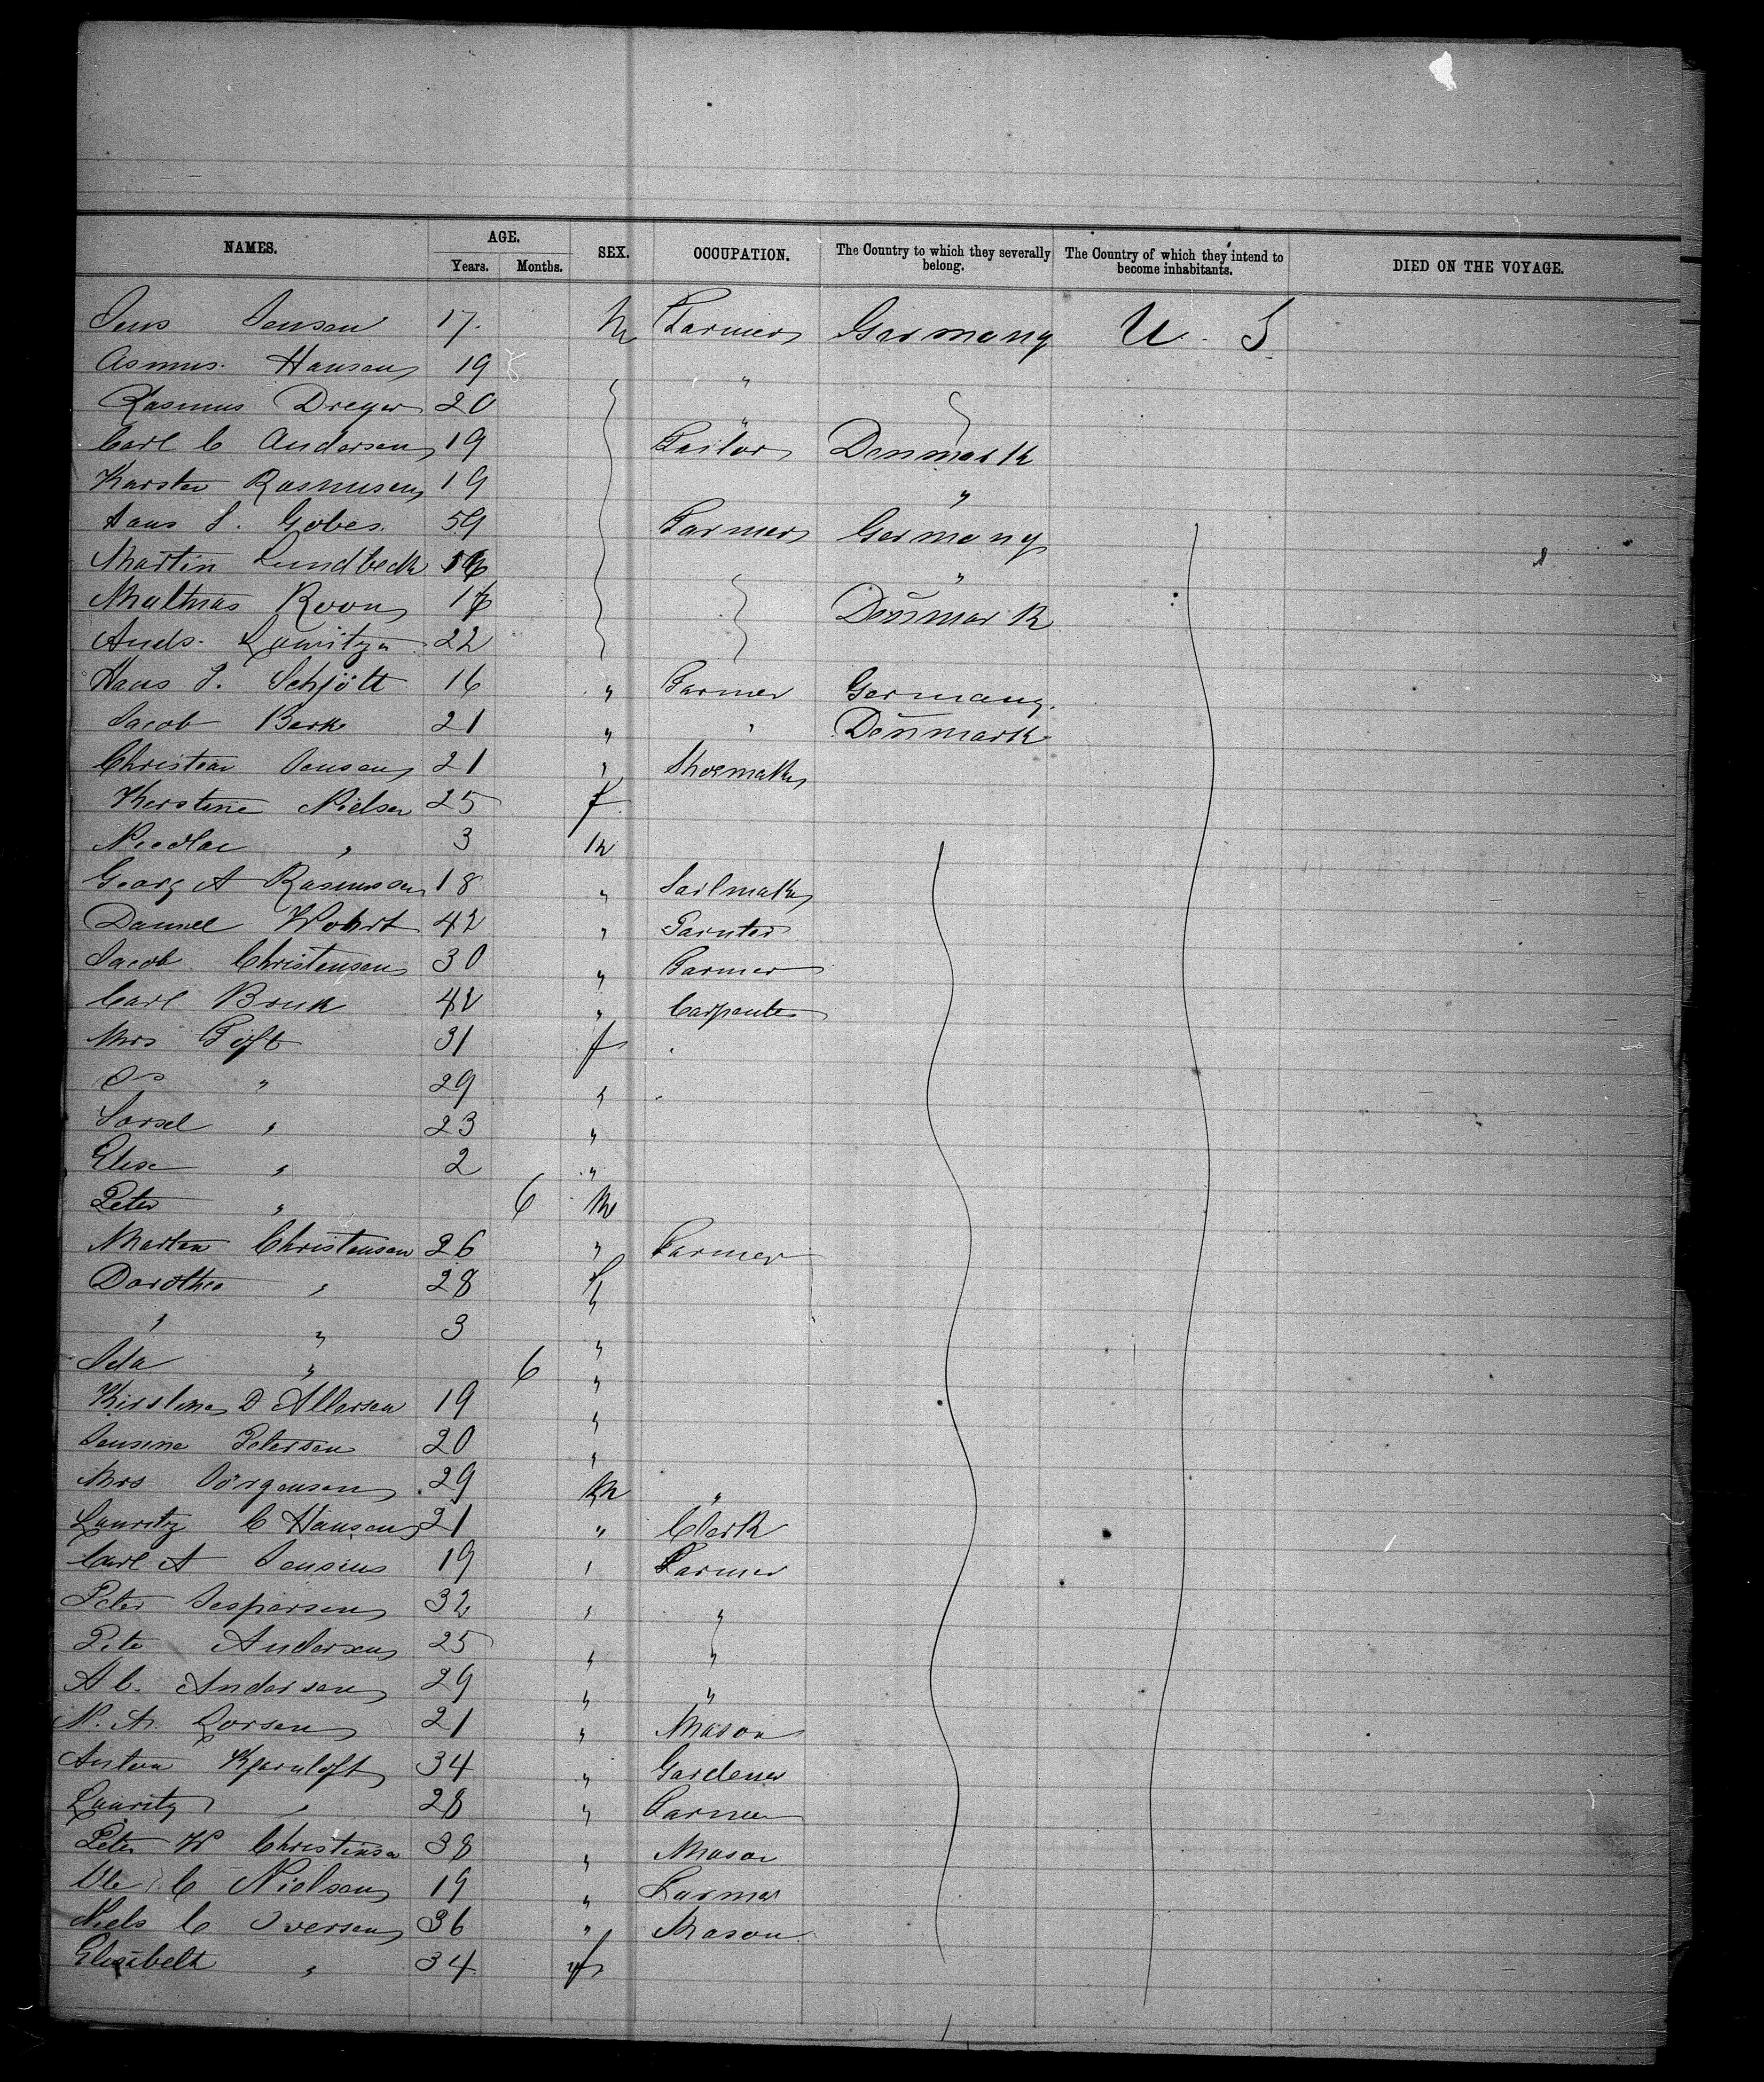 NAMES. AGE. Years. Months. SEX. OCCUPATION. The Country to which they severally belong. The Country of which they intend to become inhabitants. DIED ON THE VOYAGE.
Jens Jensen 17 M Farmer Germany U. S
Asmus Hansen 19 "
Rasmus Dreyer 20 "
Carl C Andersen 19 Tailor Denmark
Karsten Rasmussen 19 "
Hans J. Gobes 59 Farmer Germany
Martin Lundbeck "
Mathias Roon Denmark
Ands. Lauritzn 22
Hans J. Schjött 16 " Farmer Germany
Jacob Berk 21 " " Denmark
Christian Jensen 21 " Shoemaker
Kerstine Nielsen 25 f
" 3 M
Georg A Rasmussen 18 " Sailmaker
Daniel Wohrt 42 " Painter
Jacob Christensen 30 " Farmer
Carl Bruk 42 " Carpenter
Mrs Toft 31 f
" 29 "
" 23 "
Elise " 2 "
Peter " 6 M
Martin Christensen 26 " Farmer
Dorothea " 28 f
" " 3 "
Ida " 6 "
Kirstine D Allersen 19 "
Jensine Petersen 20 "
Mrs Jörgensen 29 M "
Lauritz C Hansen 21 " Clerk
Carl A Jensen 19 " Farmer
Peter Jespersen 32 " "
Peter Andersen 25 " "
A C. Andersen 29 " "
N. A. Larsen 21 " Mason
Anton Kjernloft 34 " Gardener
Lauritz " 28 " Farmer
Peter W Christensen 38 " Mason
Ole C Nielsen 19 " Farmer
Niels C Iversen 36 " Mason
Elisabeth " 34 f